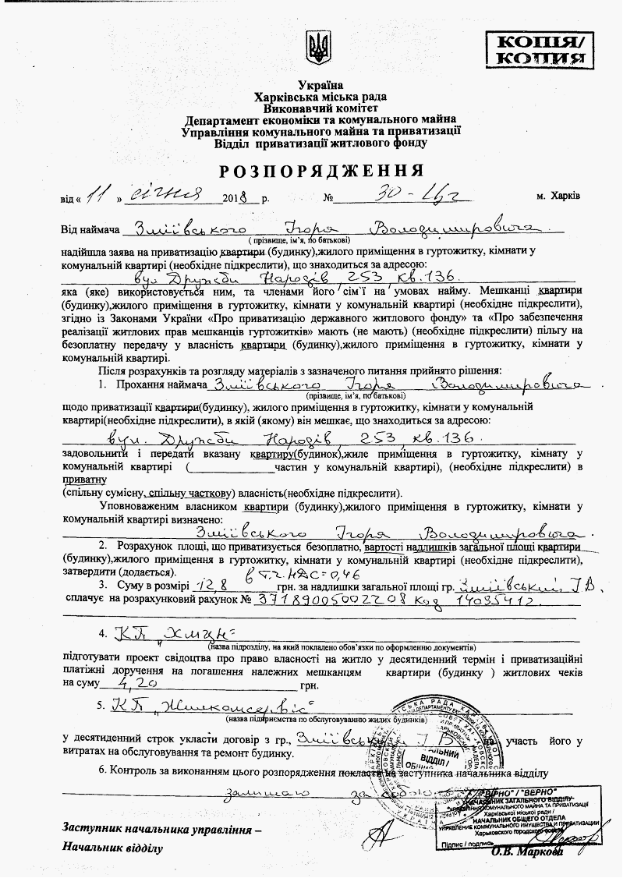 КОПІЯ/
КОПИЯ
Україна
Харківська міська рада
Виконавчий комітет
Департамент економіки та комунального майна
Управління комунального майна та приватизації
Відділ приватизації житлового фонду
РОЗПОРЯДЖЕННЯ
від « 11 » січня 2018 р. № 30- м. Харків
Від наймача Зміївського Ігоря Володимировича
( прізвище, ім’я, по батькові)
надійшла заява на приватизацію квартири (будинку),жилого приміщення в гуртожитку, кімнати у
комунальній квартирі (необхідне підкреслити), що знаходиться за адресою:
вул Дружби Народів 253 кв.136.
яка (яке) використовується ним, та членами його сім’ї на умовах найму. Мешканці квартири
(будинку),жилого приміщення в гуртожитку, кімнати у комунальній квартирі (необхідне підкреслити),
згідно із Законами України «Про приватизацію державного житлового фонду» та «Про забезпечення
реалізації житлових прав мешканців гуртожитків» мають (не мають) (необхідне підкреслити) пільгу на
безоплатну передачу у власність квартири (будинку),жилого приміщення в гуртожитку, кімнати у
комунальній квартирі.
Після розрахунків та розгляду матеріалів з зазначеного питання прийнято рішення:
1. Прохання наймача Зміївського Ігоря Володимировича
(прізвище, ім’я, по батькові)
щодо приватизації квартири(будинку), жилого приміщення в гуртожитку, кімнати у комунальній
квартирі(необхідне підкреслити), в якій (якому) він мешкає, що знаходиться за адресою:
вул. Дружби Народів, 253 кв.136.
задовольнити і передати вказану квартиру(будинок),жиле приміщення в гуртожитку, кімнату у
комунальній квартирі (____________частин у комунальній квартирі), (необхідне підкреслити) в
приватну
(спільну сумісну, спільну часткову) власність(необхідне підкреслити).
Уповноваженим власником квартири (будинку),жилого приміщення в гуртожитку, кімнати у
комунальній квартирі визначено:
Зміївського Ігоря Володимировича.
2. Розрахунок площі, що приватизується безоплатно, вартості надлишків загальної площі квартири
(будинку),жилого приміщення в гуртожитку, кімнати у комунальній квартирі (необхідне підкреслити),
затвердити (додається). в т.ч. НДС=0,46
3. Суму в розмірі 12,8 грн. за надлишки загальної площі гр. Зміївський ІВ,
сплачує на розрахунковий рахунок № 37189005002208 Код 14095412.
4. КП „Хмцн"
(назва підрозділу, на який покладено обов’язки по оформленню документів)
підготувати проект свідоцтва про право власності на житло у десятиденний термін і приватизаційні
платіжні доручення на погашення належних мешканцям квартири (будинку ) житлових чеків
на суму 4,20 грн.
5. КП „Жилкомсервіс"
(назва підприємства по обслуговуванню жилих будинків)
у десятиденний строк укласти договір з гр., Зміївський І В на участь його у
витратах на обслуговування та ремонт будинку.
6. Контроль за виконанням цього розпорядження покласти на заступника начальника відділу
залишаю за собою
"ВІРНО" / "ВЕРНО"
НАЧАЛЬНИК ЗАГАЛЬНОГО ВІДДІЛУ
УПРАВЛІННЯ КОМУНАЛЬНОГО МАЙНА ТА ПРИВАТИЗАЦІЇ
Харківської міської ради /
НАЧАЛЬНИК ОБЩЕГО ОТДЕЛА
УПРАВЛЕНИЕ КОММУНАЛЬНОГО ИМУЩЕСТВА И ПРИВАТИЗАЦИИ
Харьковского городского совета
Підпис / подпись
Заступник начальника управління –
Начальник відділу
О.В. Маркова